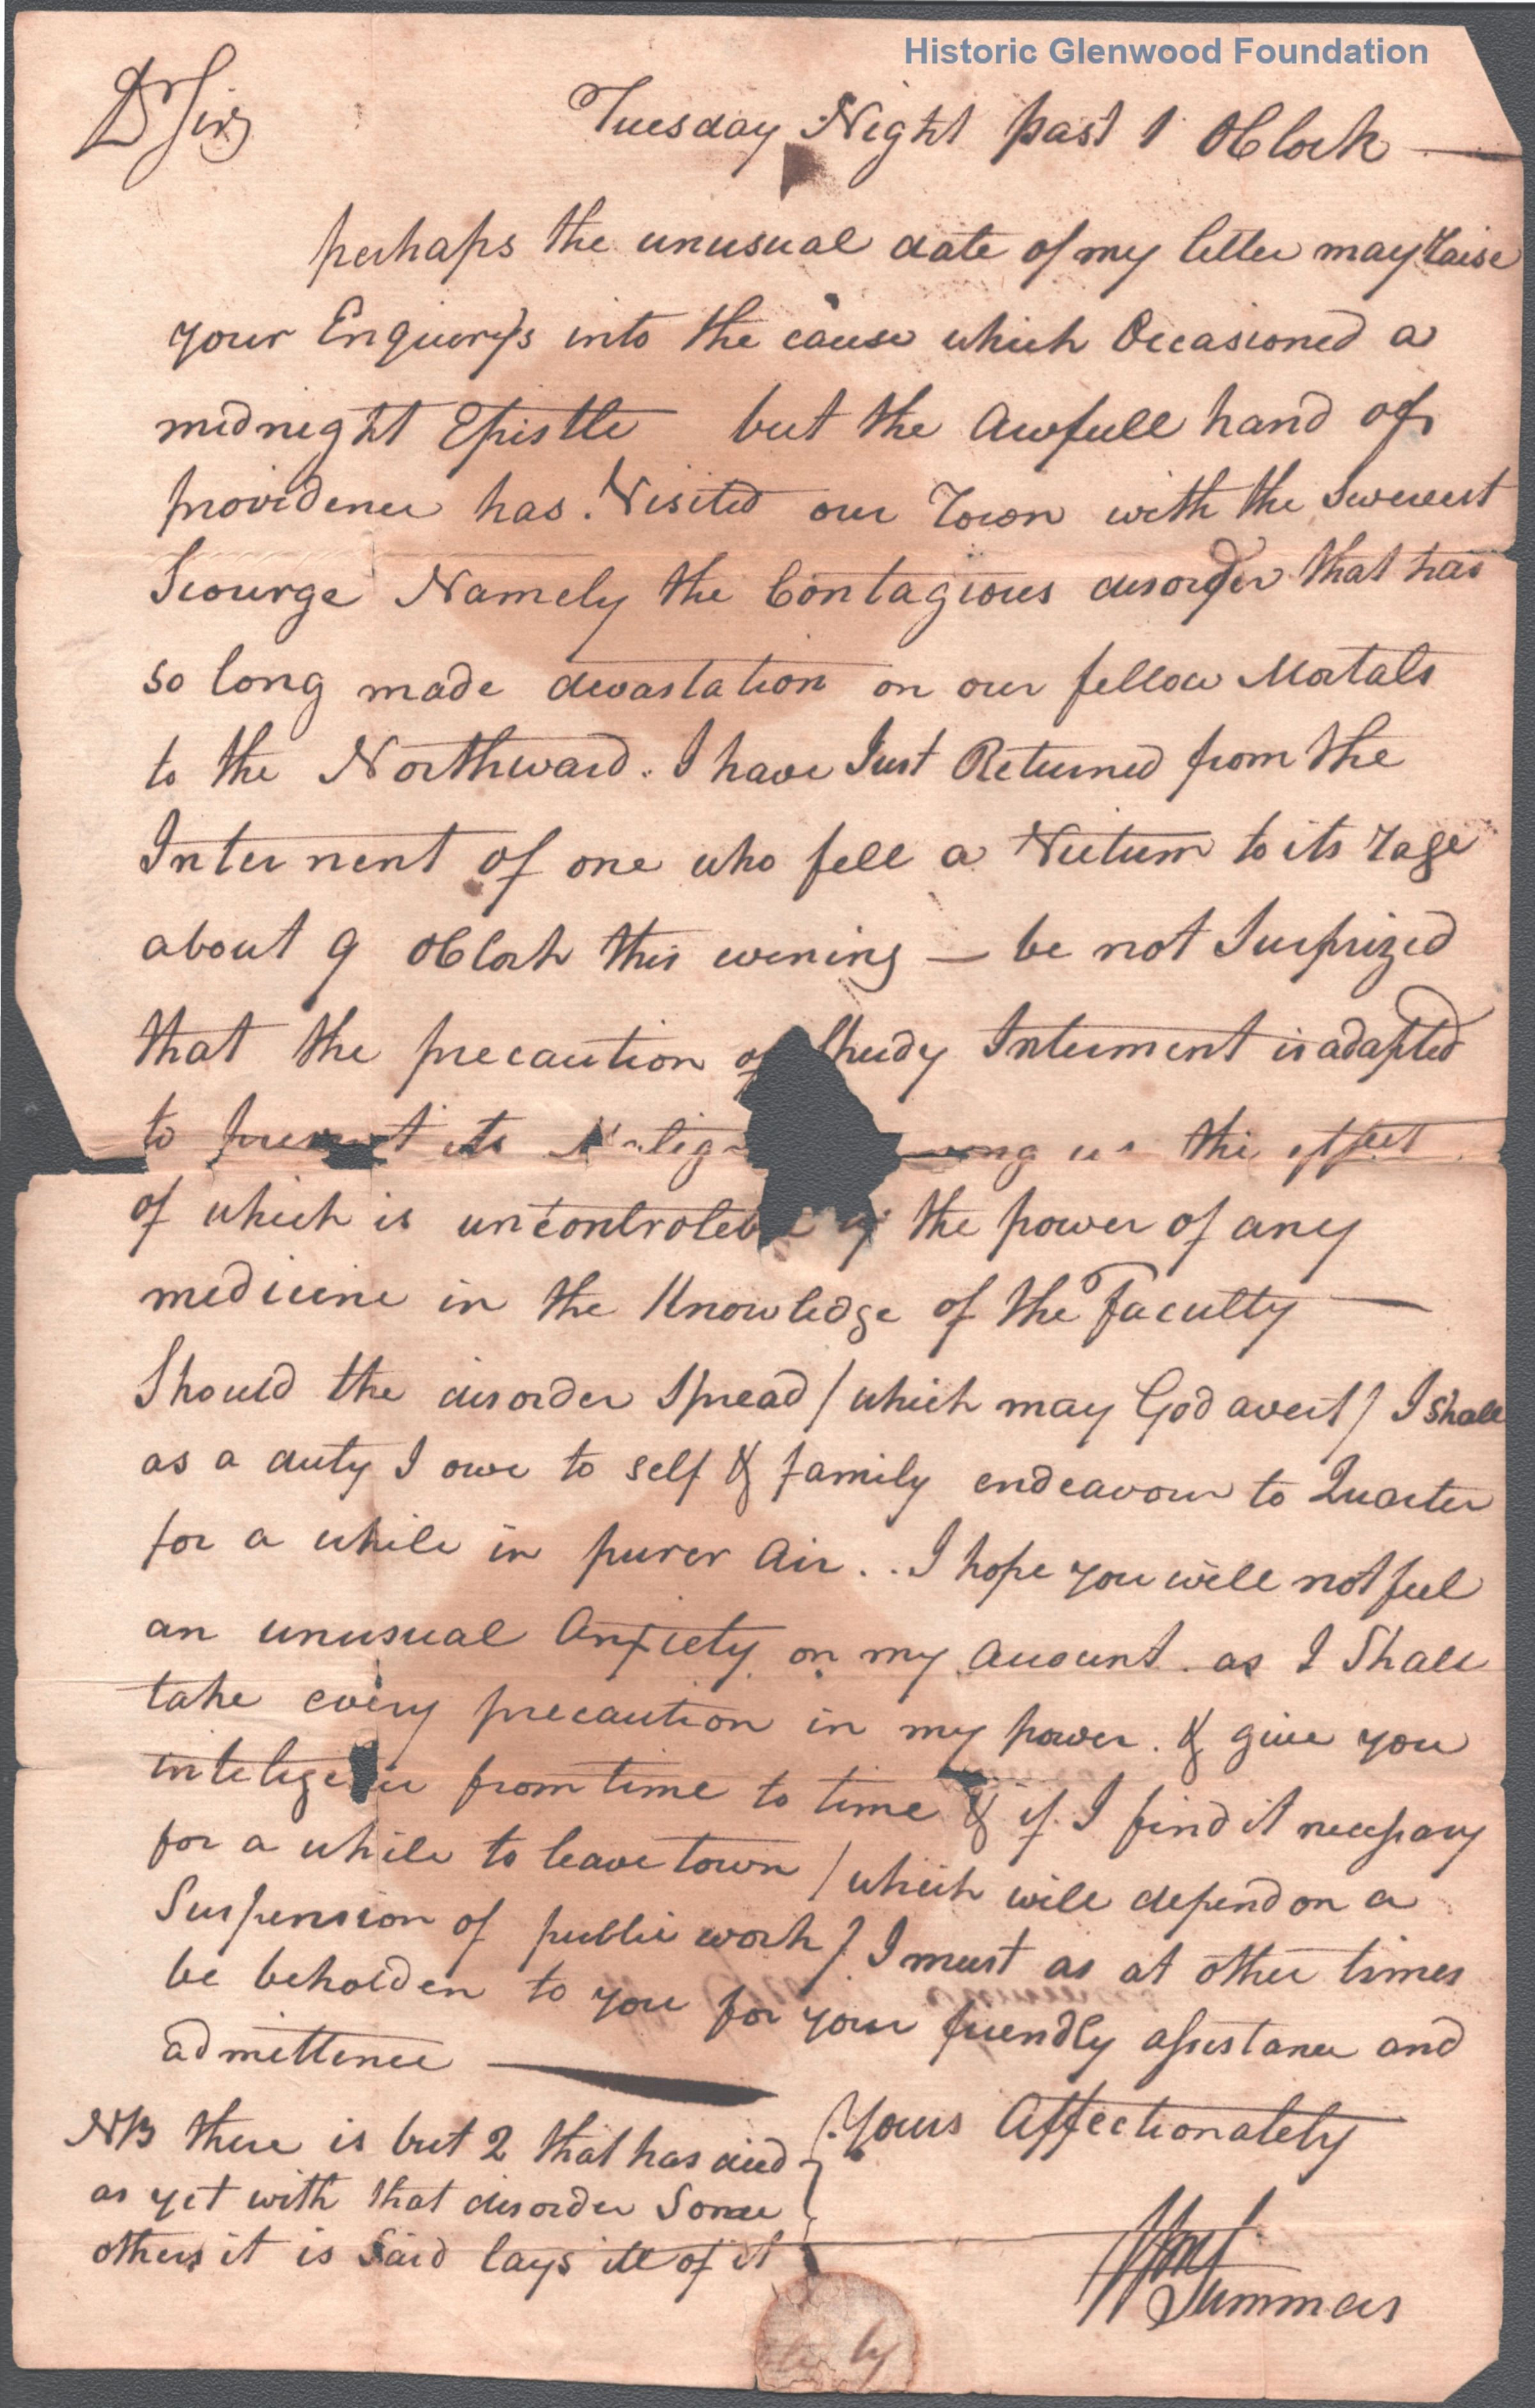 Historic Glenwood Foundation
Dr Sir,
Tuesday Night past 1 OClock —
perhaps the unusual date of my letter may raise
your Enquirys into the cause which Occasioned a
midnight Epistle but the Awfull hand of
providence has Visited our Town with the Severest
Scourge Namely the Contagious disorder that has
so long made devastation on our fellow Mortals
to the Northward. I have Just Returned from the
Interment of one who fell a Victum to its rage
about 9 OClock this evening — be not Surprized
that the precaution of Interment is adapted
to its us the effect
of which is the power of any
medicine in the Knowledge of the Faculty —
Should the disorder Spread / which may God avert / I shall
as a duty I owe to self & family endeavour to Quarter
for a while in purer Air . . I hope you will not feel
an unusual Anxiety on my Account as I Shall
take every precaution in my power. & give you
from time to time & if I find it necessary
for a while to leave town / which will depend on a
Suspension of public work / I must as at other times
be beholden to you for your friendly assistance and
admittence —
Yours Affectionately
Wm Summers
NB there is but 2 that has died
as yet with that disorder Some
others it is Said lays ill of it